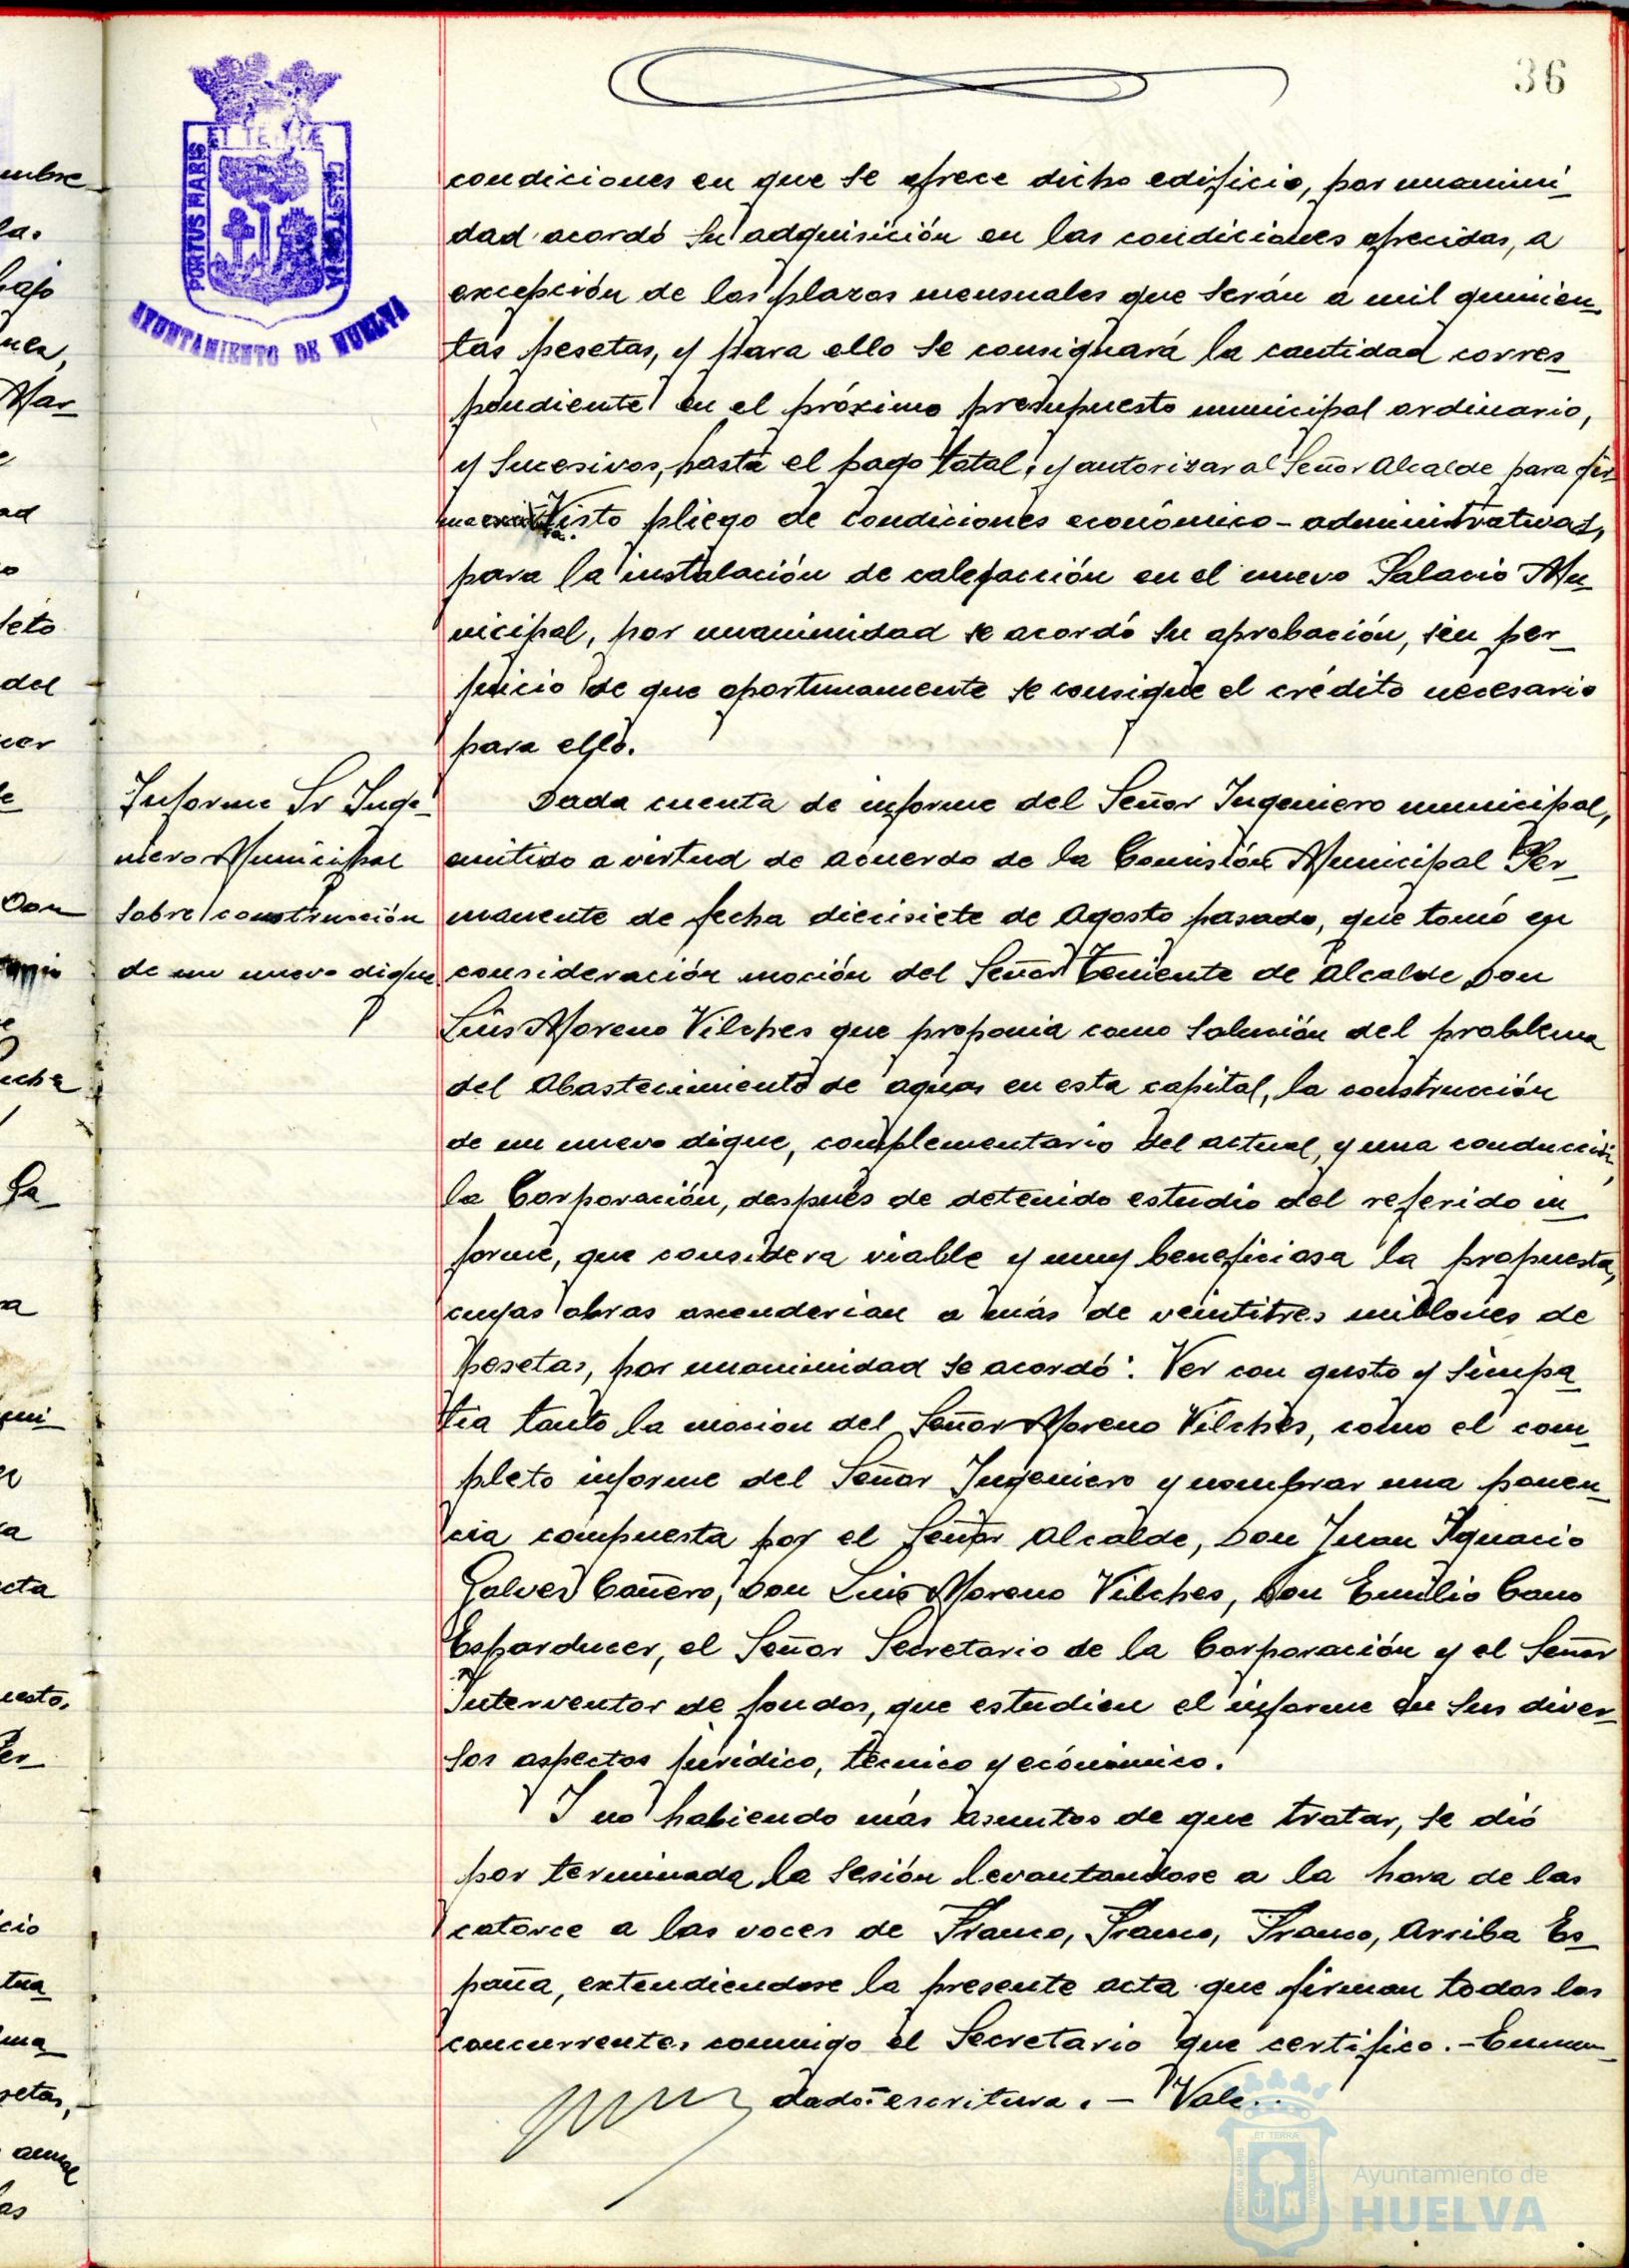 36
PORTUS MARIS
ET TERRÆ
CUSTODIA
AYUNTAMIENTO DE HUELVA
condiciones en que se ofrece dicho edificio, por unanimi-
dad acordó su adquisición en las condiciones ofrecidas, a
excepción de los plazos mensuales que serán a mil quinien-
tas pesetas, y para ello se consignará la cantidad corres-
pondiente en el próximo presupuesto municipal ordinario,
y sucesivos, hasta el pago total; y autorizar al Señor Alcalde para fir-
Visto pliego de condiciones económico-administrativas,
para la instalación de calefacción en el nuevo Palacio Mu-
nicipal, por unanimidad se acordó su aprobación, sin per-
juicio de que oportunamente se consigne el crédito necesario
para ello.
Informe Sr Inge-
niero Municipal
sobre construcción
de un nuevo dique
Dada cuenta de informe del Señor Ingeniero municipal,
emitido a virtud de acuerdo de la Comisión Municipal Per-
manente de fecha diecisiete de Agosto pasado, que tomó en
consideración moción del Señor Teniente de Alcalde Don
Luis Moreno Vilches que proponia como solución del problema
del Abastecimiento de aguas en esta capital, la construcción
de un nuevo dique, complementario del actual, y una conducción,
la Corporación, después de detenido estudio del referido in-
forme, que considera viable y muy beneficiosa la propuesta,
cuyas obras ascenderian a más de veintitres millones de
pesetas, por unanimidad se acordó: Ver con gusto y simpa-
tia tanto la mocion del Señor Moreno Vilches, como el com-
pleto informe del Señor Ingeniero y nombrar una ponen-
cia compuesta por el Señor Alcalde, Don Juan Ignacio
Galvez Cañero, Don Luis Moreno Vilches, Don Emilio Cano
Esparducer, el Señor Secretario de la Corporación y el Señor
Interventor de fondos, que estudien el informe en sus diver-
sos aspectos juridico, técnico y económico.
Y no habiendo más asuntos de que tratar, se dió
por terminada la sesión levantandose a la hora de las
catorce a las voces de Franco, Franco, Franco, Arriba Es-
paña, extendiendose la presente acta que firman todos los
concurrentes conmigo el Secretario que certifico.-Enmen-
dado: escritura.- Vale..
Ayuntamiento de
HUELVA